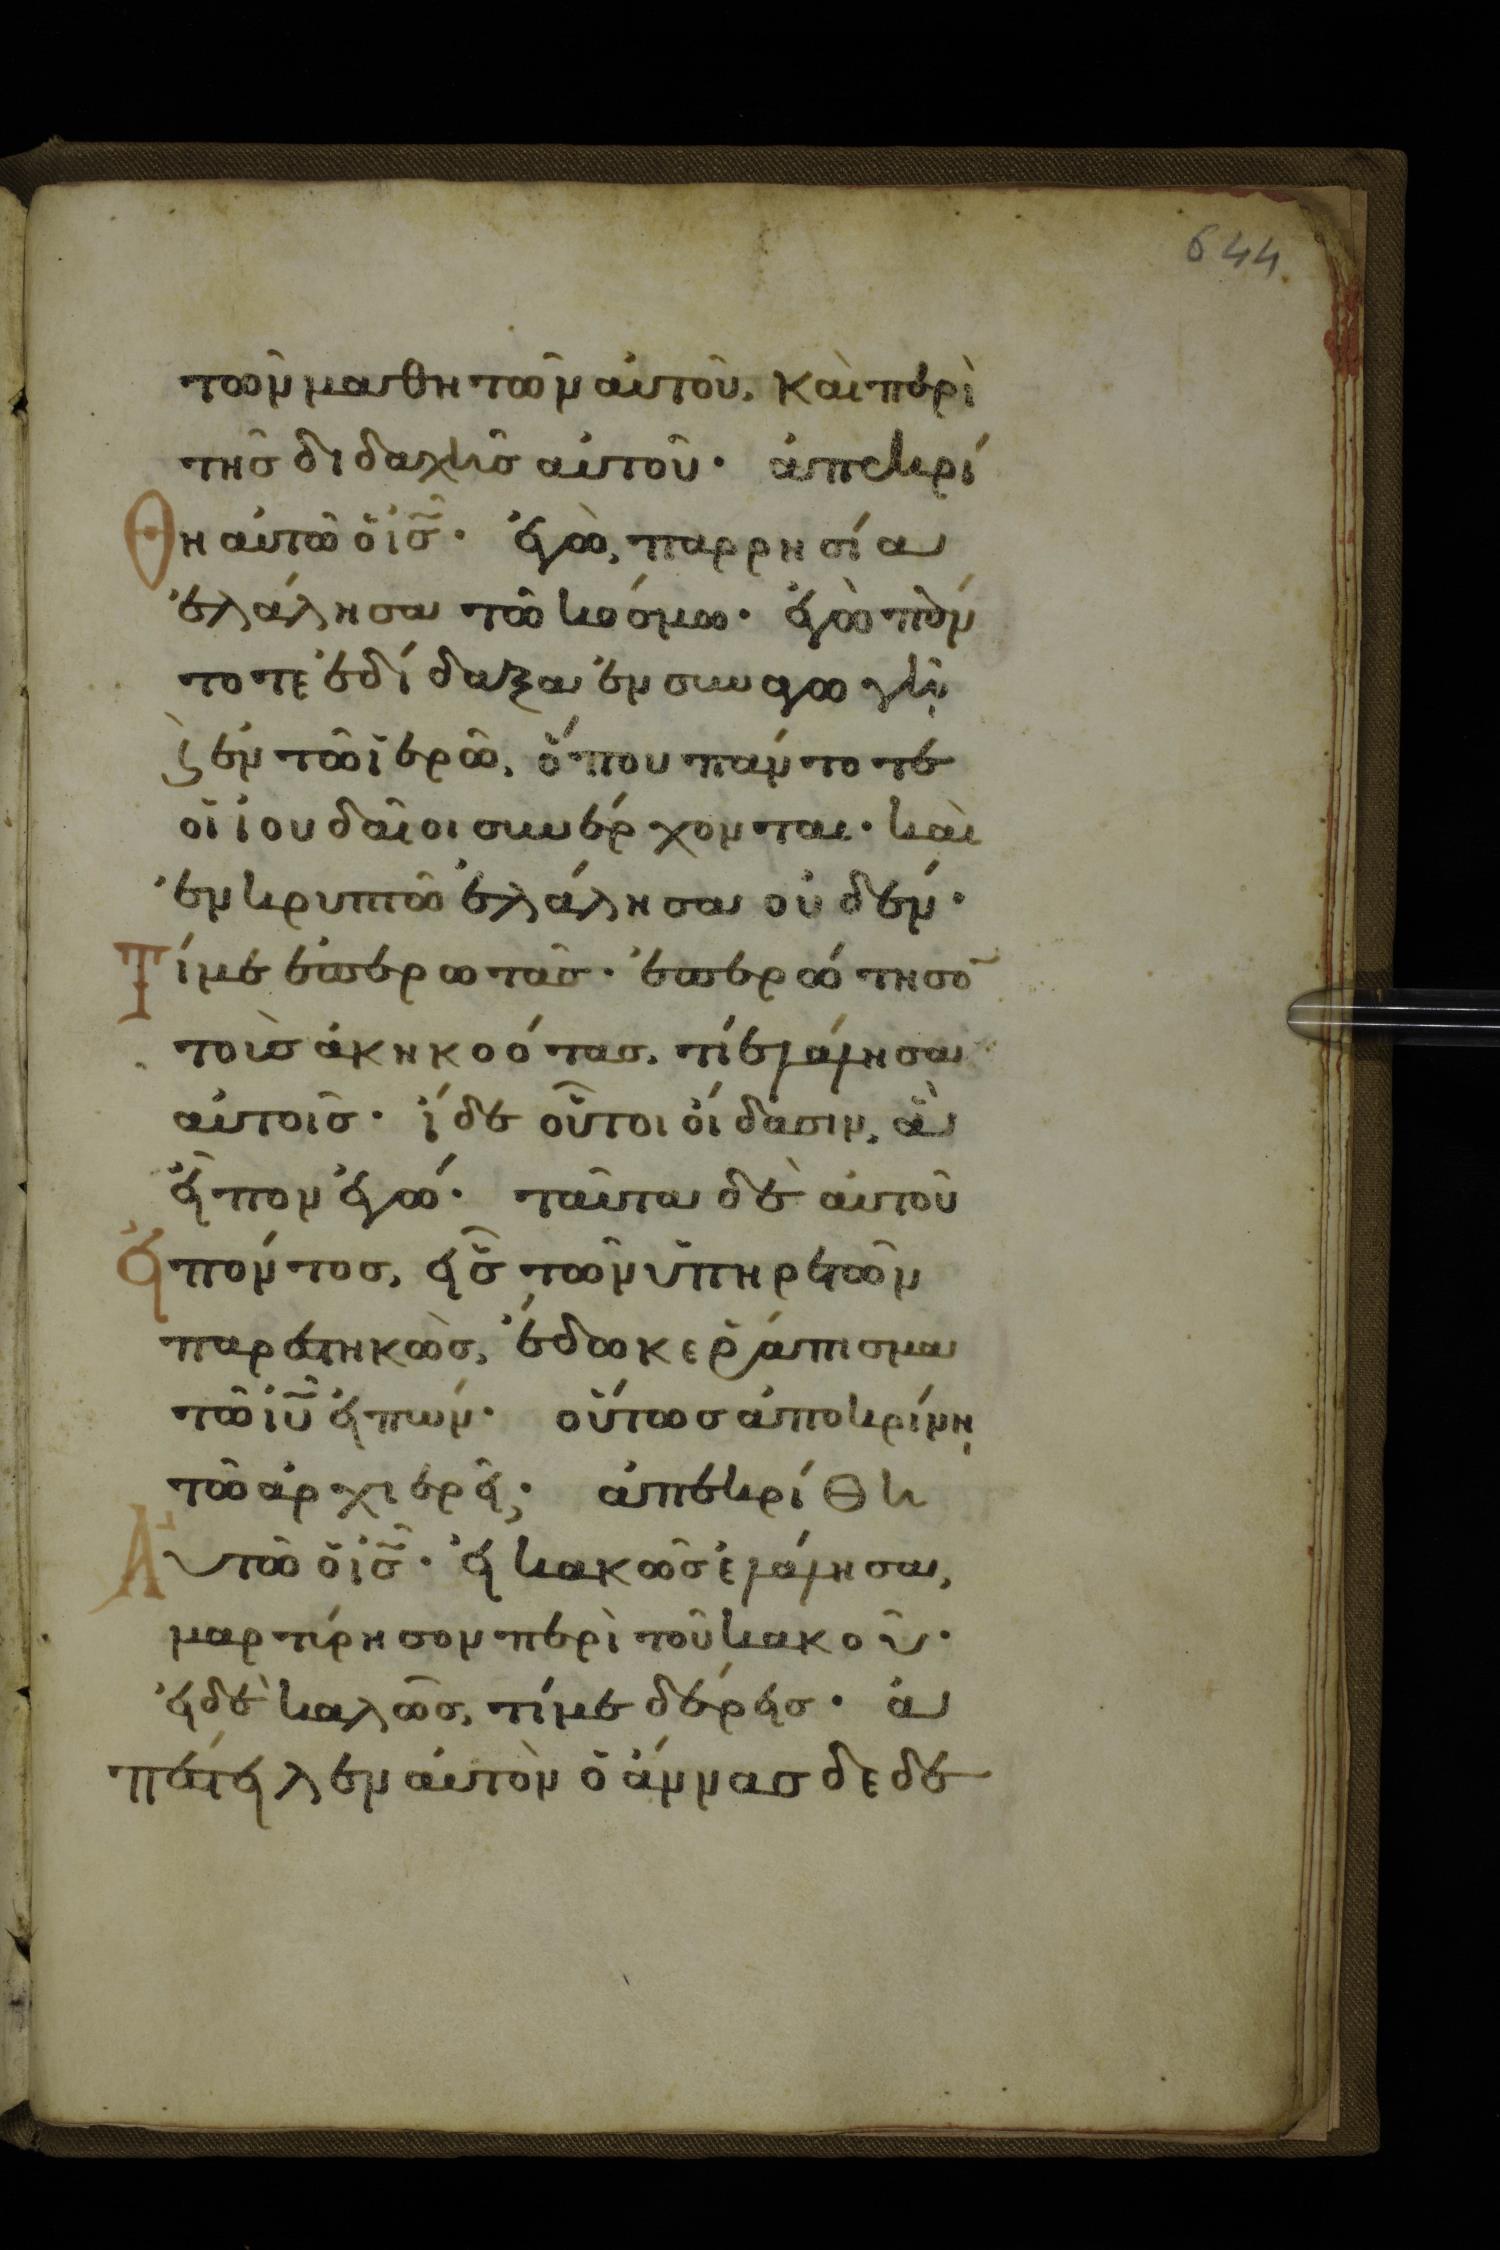 644
τῶν μαθητῶν αὐτοῦ, καὶ περὶ
τῆς διδαχῆς αὐτοῦ· ἀπεκρί
θη αὐτῶ ὁ ἰς̅· ἐγὼ, παρρησία
ἐλάλησα τῶ κόσμω· ἐγὼ πάν
τοτε ἐδίδαξα ἐν συναγωγῆ,
ϗ ἐν τῶ ἱερῶ, ὅπου πάντοτε
οἱ ἰουδαῖοι συνέρχονται· καὶ
ἐν κρυπτῶ ἐλάλησα οὐδέν·
Τί με ἐπερωτᾶς· ἐπερώτησο̅
τοὺς ἀκηκοότας, τί ἐλάλησα
αὐτοῖς· ἴδε οὗτοι οἴδασιν, ἃ
εἶπον ἐγώ· ταῦτα δὲ αὐτοῦ
εἰπόντος, εἷς τῶν ὑπηρετῶν
παρεστηκὼς, ἔδωκε ῥάπισμα
τῶ ἰυ̅ εἰπών· οὕτως ἀποκρίνη
τῶ ἀρχιερεῖ; ἀπεκρίθη
Αὐτῶ ὁ ἰς̅· εἰ κακῶς ἐλάλησα,
μαρτύρησον περὶ τοῦ κακοῦ·
εἰ δὲ καλῶς, τί με δέρεις· ἀ
πέστειλεν αὐτὸν ὁ ἄννας δεδε